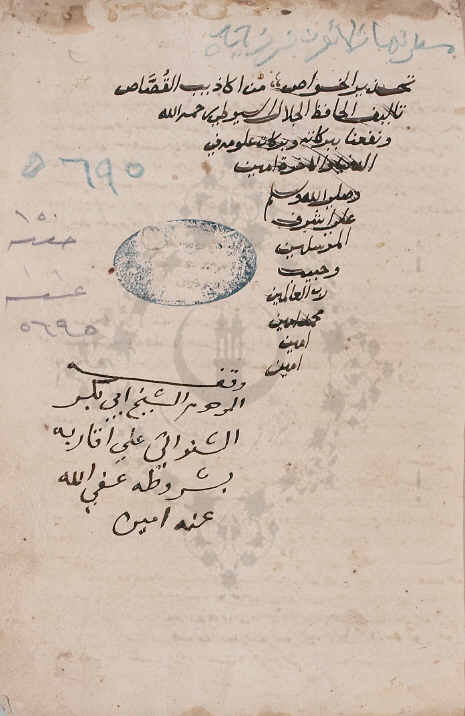 تحذير الخواص من اكاذيب القُصَّاص
تاليف الحافظ الجلال السيوطي رحمه الله
ونفعنا ببركاته وبركات علومه في
امين
وصلى الله وسلم
على اشرف
المرسلين
وحبيب
رب العالمين
محمد امين
امين
امين
٥٦٩٥
١٥٠
٥٦٩٥
وقفه
المرحوم الشيخ ابي بكر
الشنواني على اقاربه
بشروطه عفي الله
عنه امين